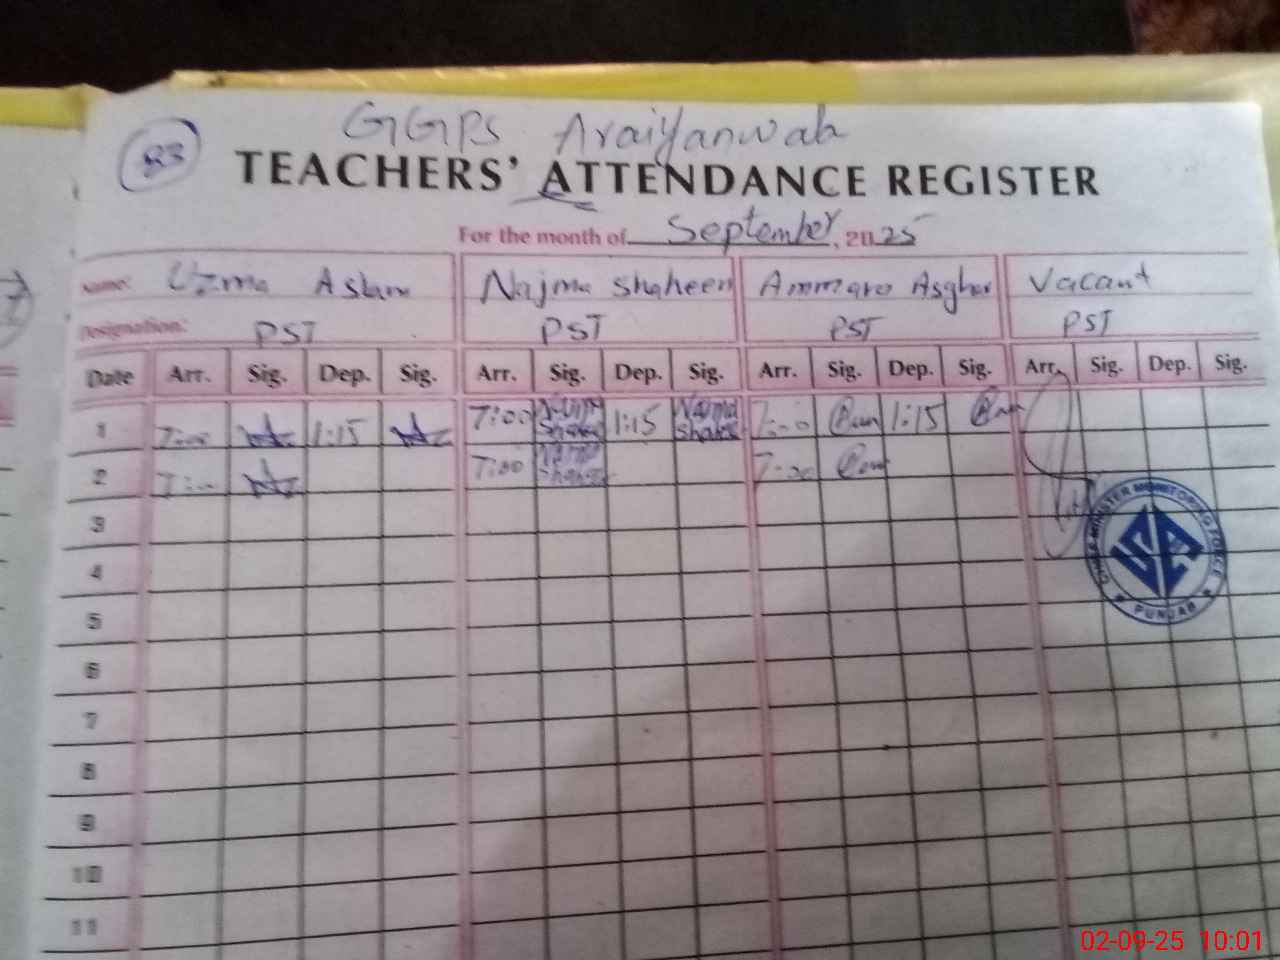 GGPS Araiyanwab
83
TEACHERS' ATTENDANCE REGISTER
For the month of September, 2025
Name: Uzma Aslam Najma Shaheen Ammara Asghar Vacant
Designation: PST PST PST PST
Date Arr. Sig. Dep. Sig. Arr. Sig. Dep. Sig. Arr. Sig. Dep. Sig. Arr. Sig. Dep. Sig.
1 7:00 1:15 7:00 Najma Shaheen 1:15 Najma Shaheen 7:00 1:15
2 7:00 7:00 Najma Shaheen 7:00
3
4
5
6
7
8
9
10
11
CHIEF MINISTER MONITORING FORCE
PUNJAB
02-09-25 10:01